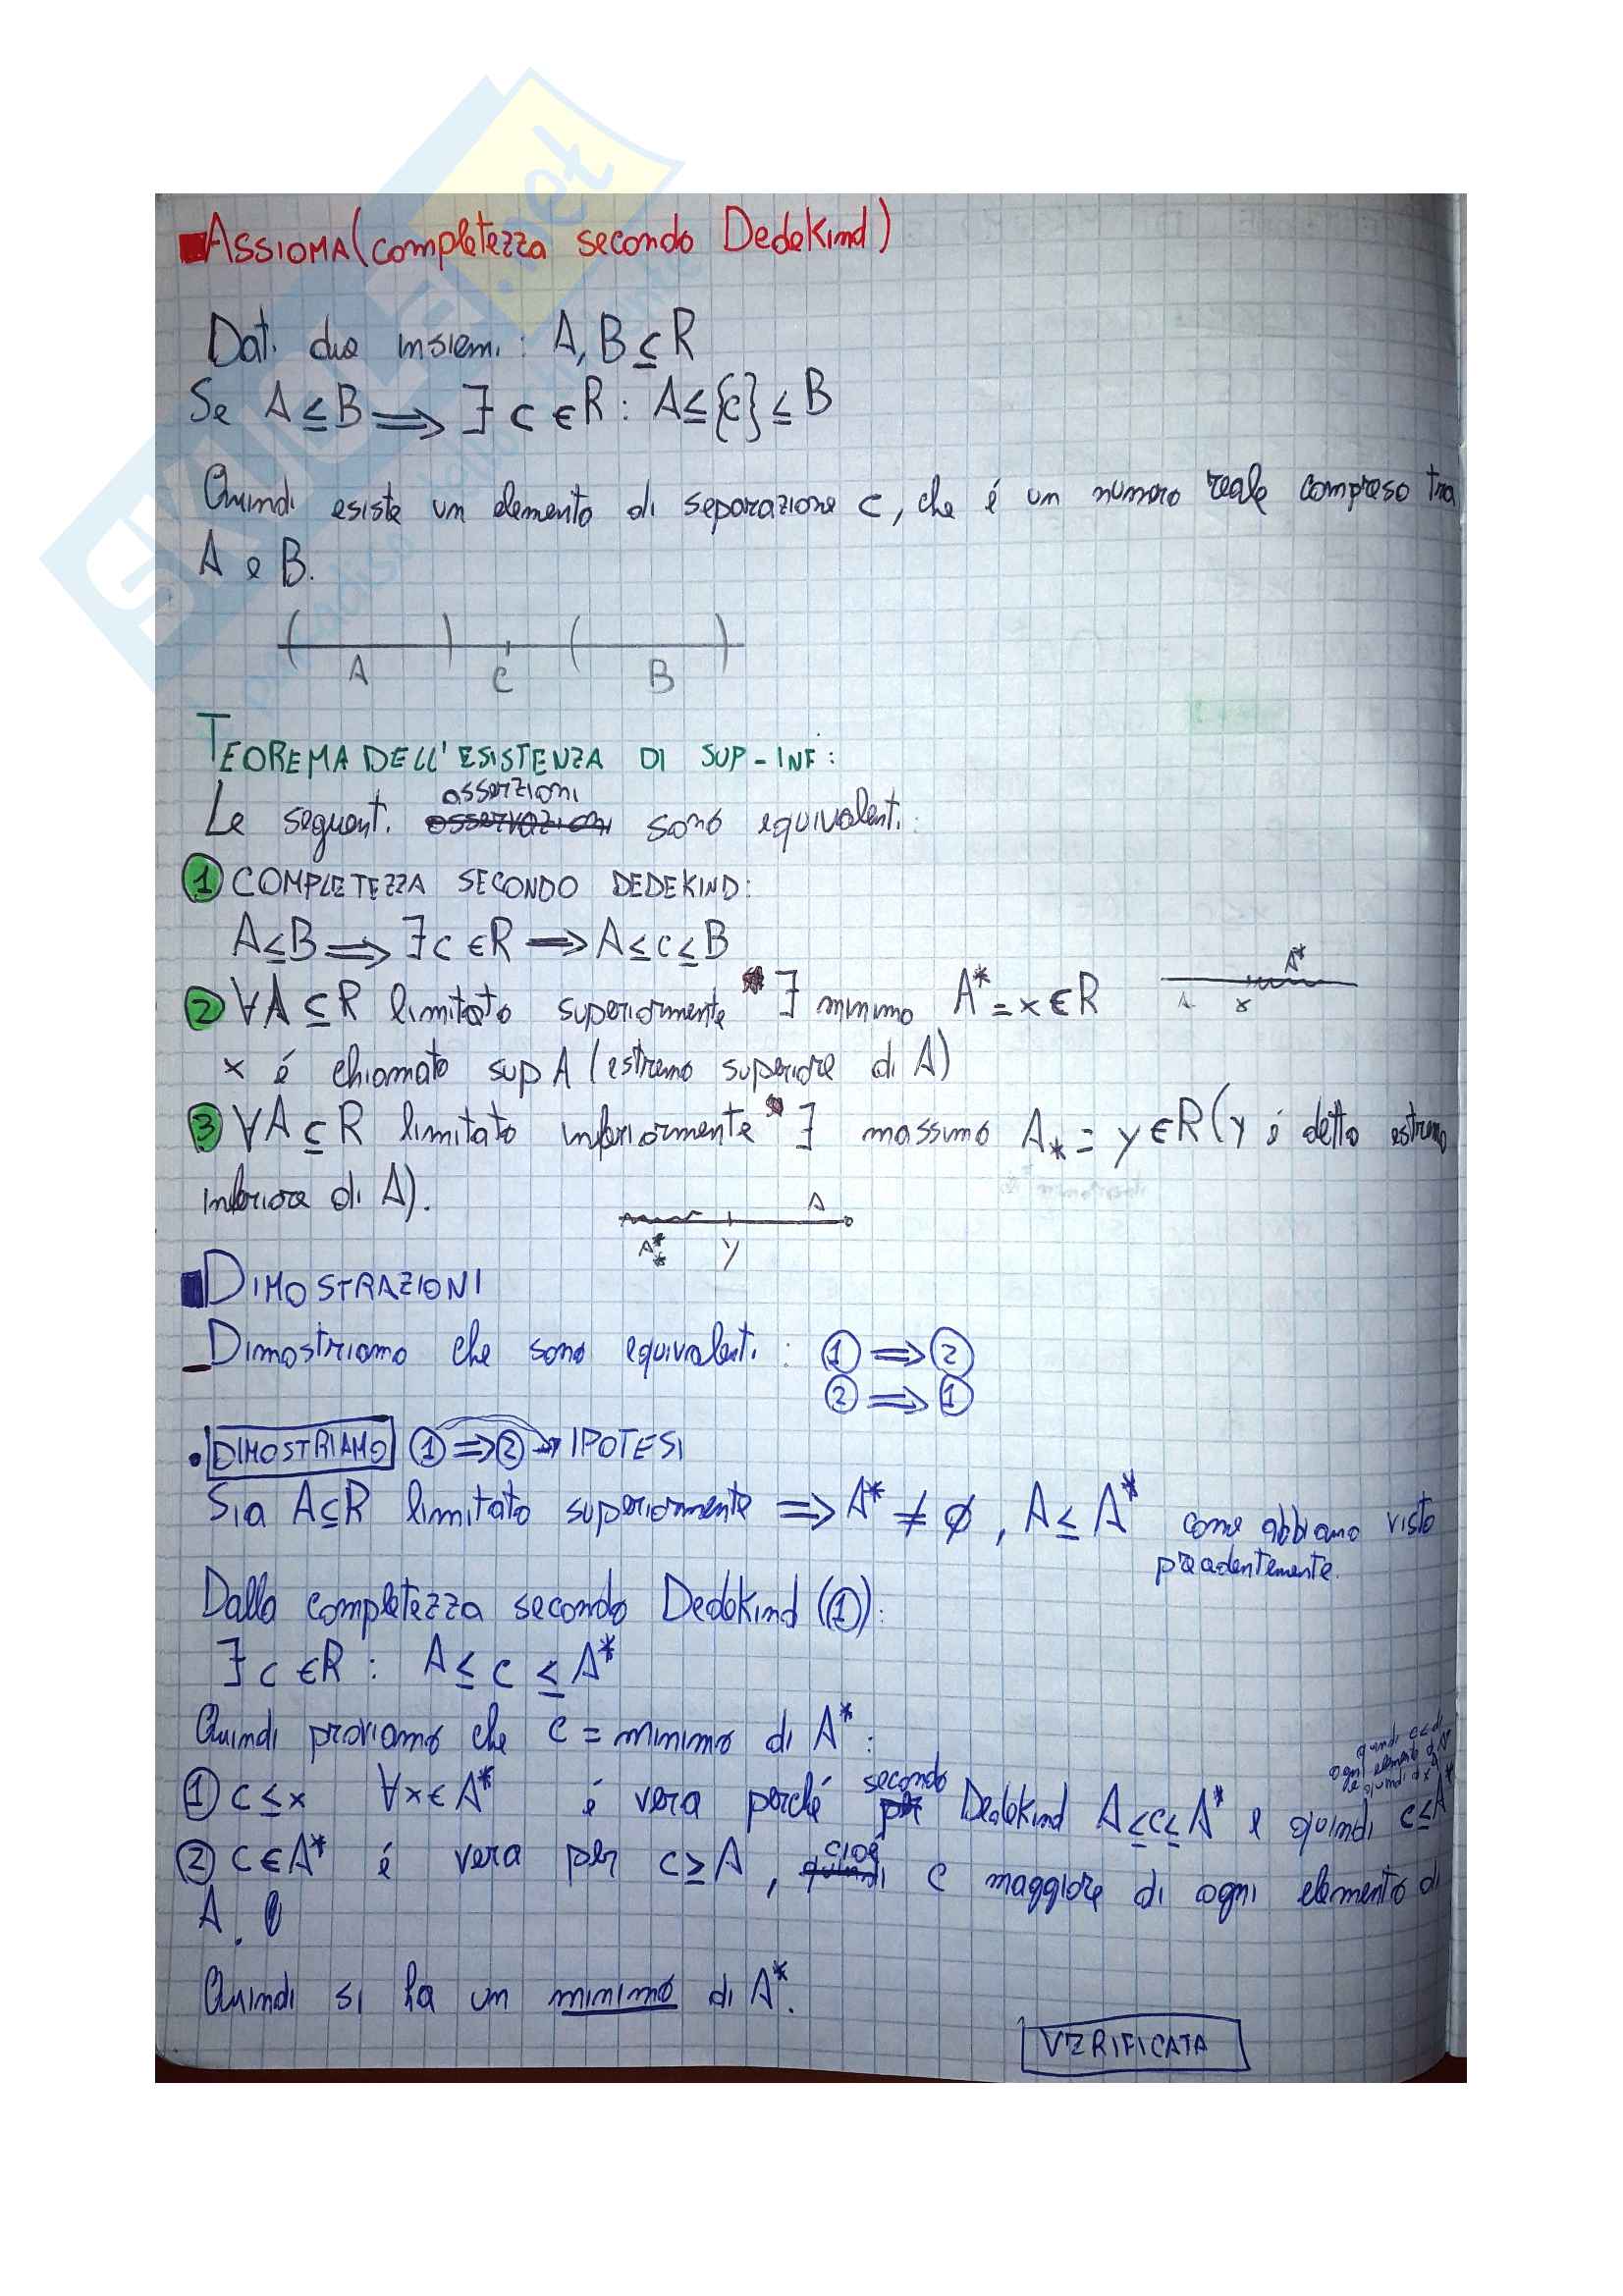 SKUOLA.net
ASSIOMA (completezza secondo Dedekind)
Dati due insiemi: A, B ⊆ R
Se A ≤ B ⟹ ∃ c ∈ R : A ≤ {c} ≤ B
Quindi esiste un elemento di separazione c, che é un numero reale compreso tra
A e B.
A c B
TEOREMA DELL'ESISTENZA DI SUP-INF:
asserzioni
Le seguenti osservazioni sono equivalenti:
① COMPLETEZZA SECONDO DEDEKIND:
A ≤ B ⟹ ∃ c ∈ R ⟹ A ≤ c ≤ B
② ∀ A ⊆ R limitato superiormente ∃ minimo A* = x ∈ R
A x A*
x é chiamato sup A (estremo superiore di A)
③ ∀ A ⊆ R limitato inferiormente ∃ massimo A* = y ∈ R (y é detto estremo
inferiore di A).
A* y A
DIMOSTRAZIONI
Dimostriamo che sono equivalenti: ① ⟹ ②
② ⟹ ①
• DIMOSTRIAMO ① ⟹ ② → IPOTESI
Sia A ⊆ R limitato superiormente ⟹ A* ≠ ∅, A ≤ A* come abbiamo visto
precedentemente.
Dalla completezza secondo Dedekind (①):
∃ c ∈ R : A ≤ c ≤ A*
Quindi proviamo che c = minimo di A*:
quindi c ≤ di
ogni elemento di A*
① c ≤ x ∀ x ∈ A* é vera perché secondo Dedekind A ≤ c ≤ A* e quindi c ≤ A*
② c ∈ A* é vera per c ≥ A, quindi cioé c maggiore di ogni elemento di
A.
Quindi si ha un minimo di A*.
VERIFICATA